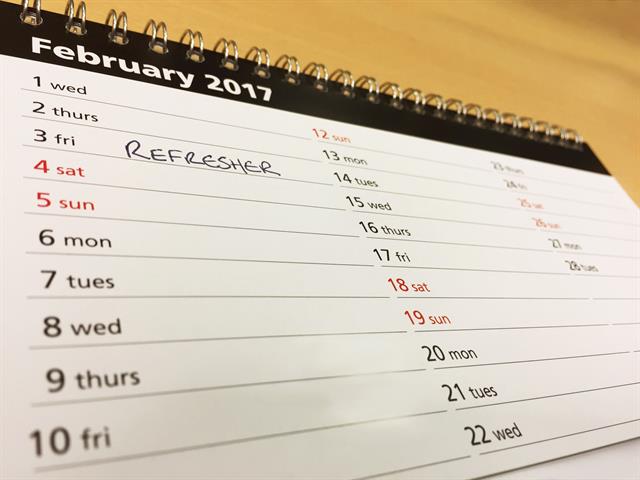 February 2017
1 wed
2 thurs
3 fri REFRESHER
4 sat
5 sun
6 mon
7 tues
8 wed
9 thurs
10 fri
12 sun
13 mon
14 tues
15 wed
16 thurs
17 fri
18 sat
19 sun
20 mon
21 tues
22 wed
23 thurs
24 fri
25 sat
26 sun
27 mon
28 tues